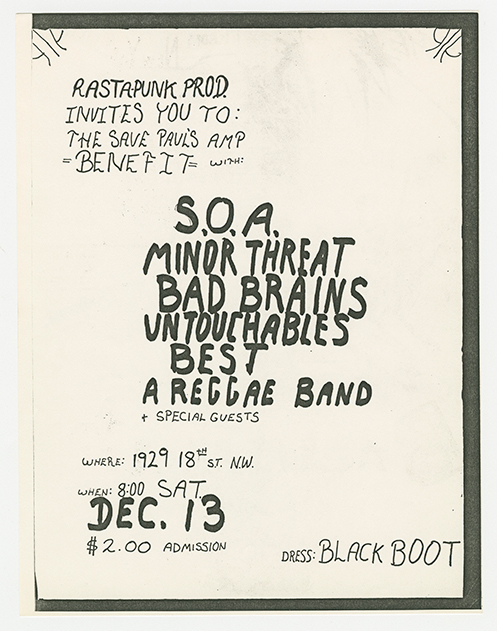 RASTAPUNK PROD.
INVITES YOU TO:
THE SAVE PAUL'S AMP
=BENEFIT= WITH:
S.O.A.
MINOR THREAT
BAD BRAINS
UNTOUCHABLES
BEST
A REGGAE BAND
+ SPECIAL GUESTS
WHERE: 1929 18TH ST. N.W.
WHEN: 8:00 SAT.
DEC. 13
$2.00 ADMISSION
DRESS: BLACK BOOT